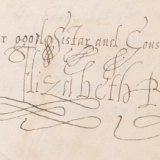 r good Sistar and Cous
Elizabeth R